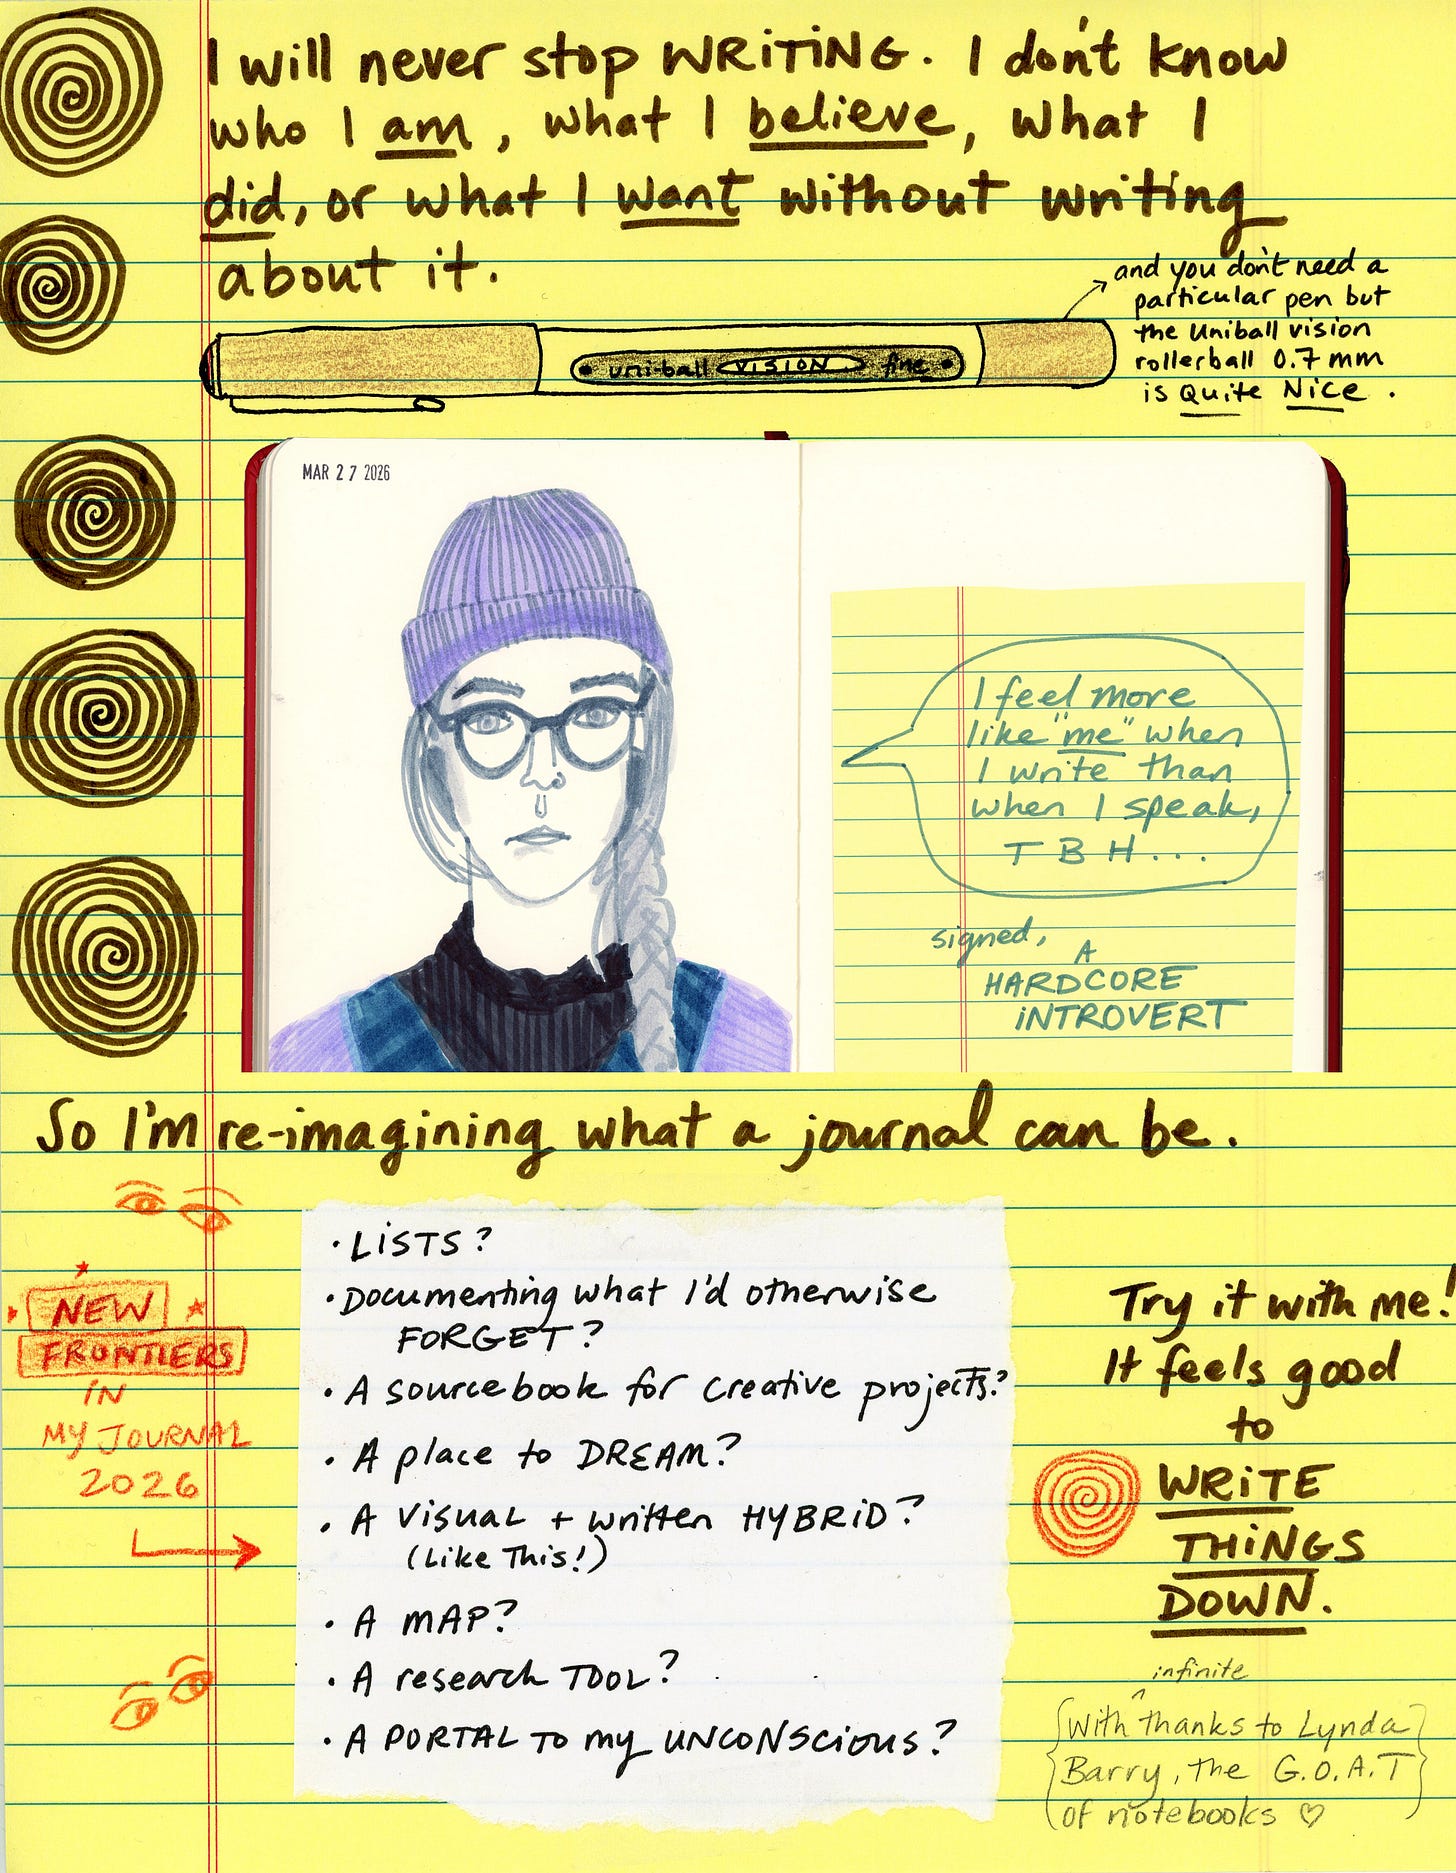 I will never stop WRiTiNG. I don't know
who I am, what I believe, what I
did, or what I want without writing
about it.
and you don't need a
particular pen but
the Uniball vision
rollerball 0.7 mm
is Quite Nice.
uni-ball VISION fine
MAR 27 2026
I feel more
like "me" when
I write than
when I speak,
TBH...
signed,
A
HARDCORE
iNTROVERT
So I'm re-imagining what a journal can be.
NEW
FRONTIERS
iN
MY JOURNAL
2026
• LiSTS?
• Documenting what I'd otherwise
FORGET?
• A sourcebook for creative projects?
• A place to DREAM?
• A visual + written HYBRiD?
(Like This!)
• A MAP?
• A research TOOL?
• A PORTAL TO my UNCONSCious?
Try it with me!
It feels good
to
WRiTE
THiNGS
DOWN.
infinite
{with ^ thanks to Lynda
Barry, the G.O.A.T
of notebooks ♡}